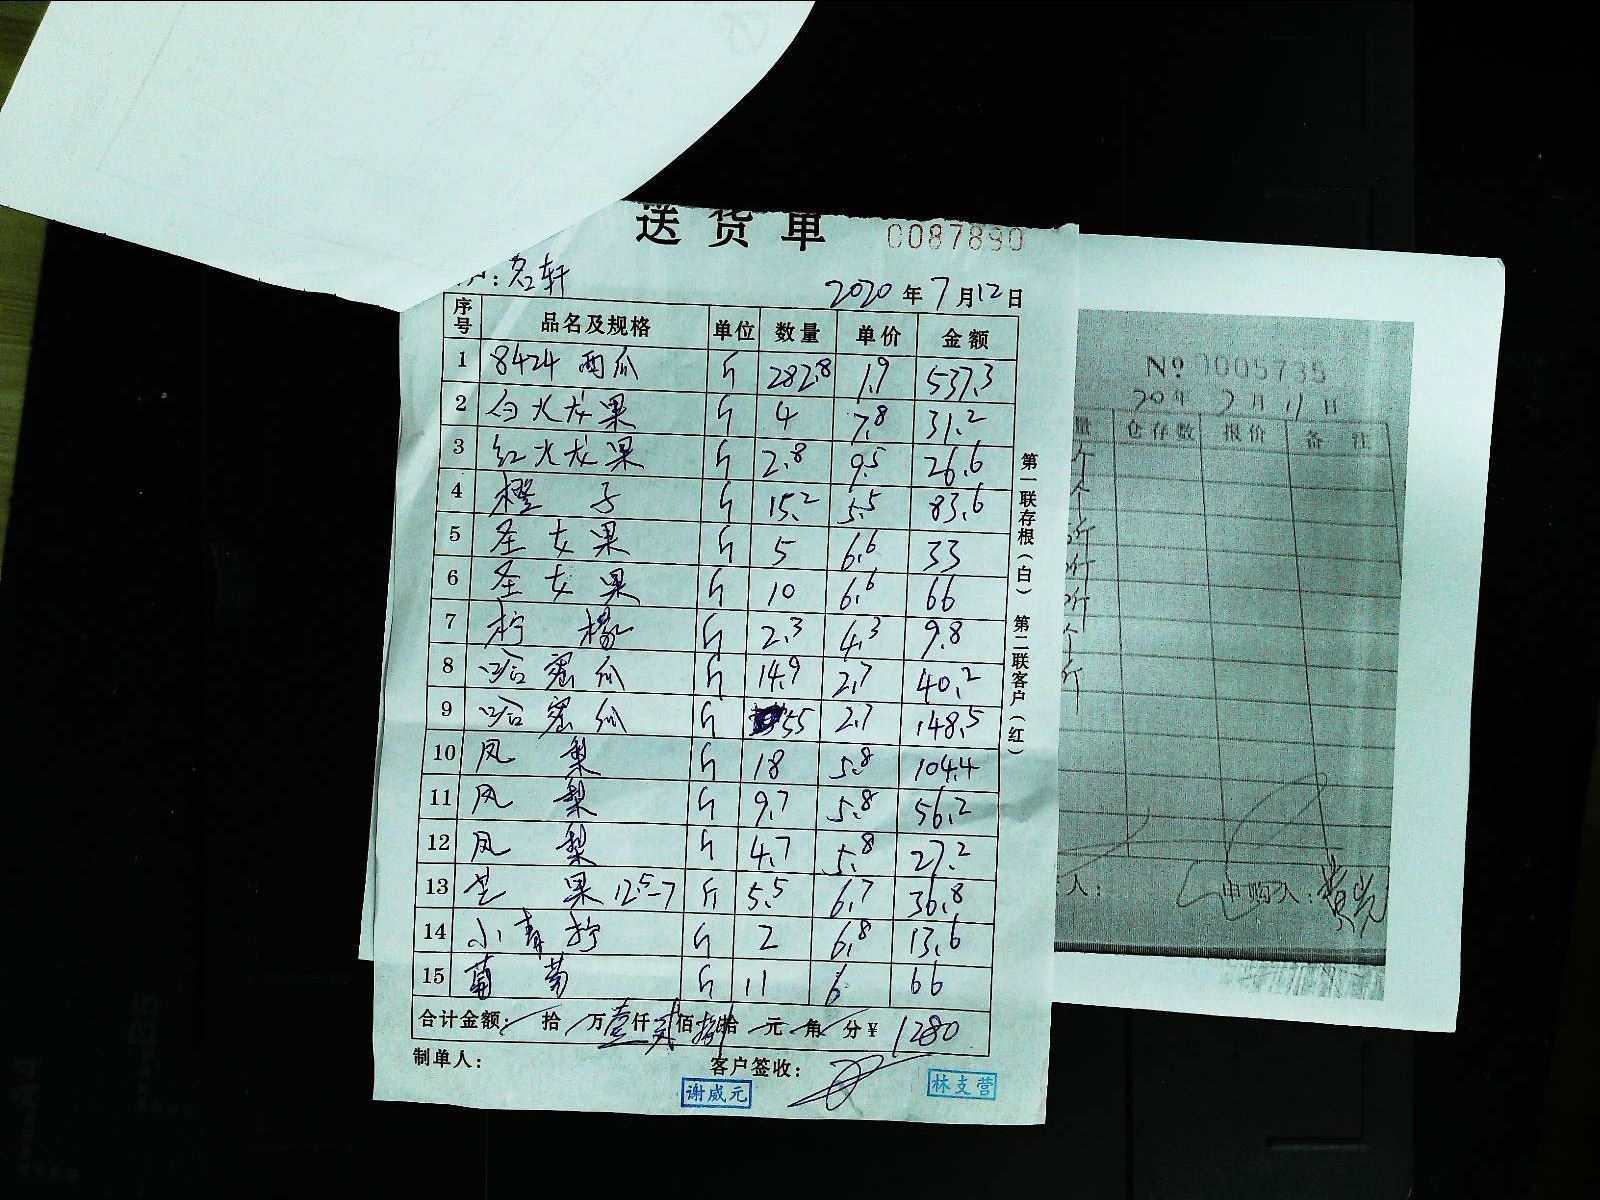 送货单 0087890
名轩
2020年7月12日
序号 品名及规格 单位 数量 单价 金额
1 8424 西瓜 斤 282.8 1.9 537.3
2 白火龙果 斤 4 7.8 31.2
3 红火龙果 斤 2.8 9.5 26.6
4 橙子 斤 15.2 5.5 83.6
5 圣女果 斤 5 6.6 33
6 圣女果 斤 10 6.6 66
7 柠檬 斤 2.3 4.3 9.8
8 哈蜜瓜 斤 14.9 2.7 40.2
9 哈蜜瓜 斤 55 2.7 148.5
10 凤梨 斤 18 5.8 104.4
11 凤梨 斤 9.7 5.8 56.2
12 凤梨 斤 4.7 5.8 27.2
13 芒果 12.5-7 斤 5.5 6.7 36.8
14 小青柠 斤 2 6.8 13.6
15 葡萄 斤 11 6 66
合计金额: 拾 万壹仟贰佰捌拾 元 角 分¥ 1280
制单人: 客户签收:
谢威元 林支营
第一联存根(白) 第二联客户(红)
№ 0005735
20年7月11日
量 仓存数 报价 备注
人: 申购人: